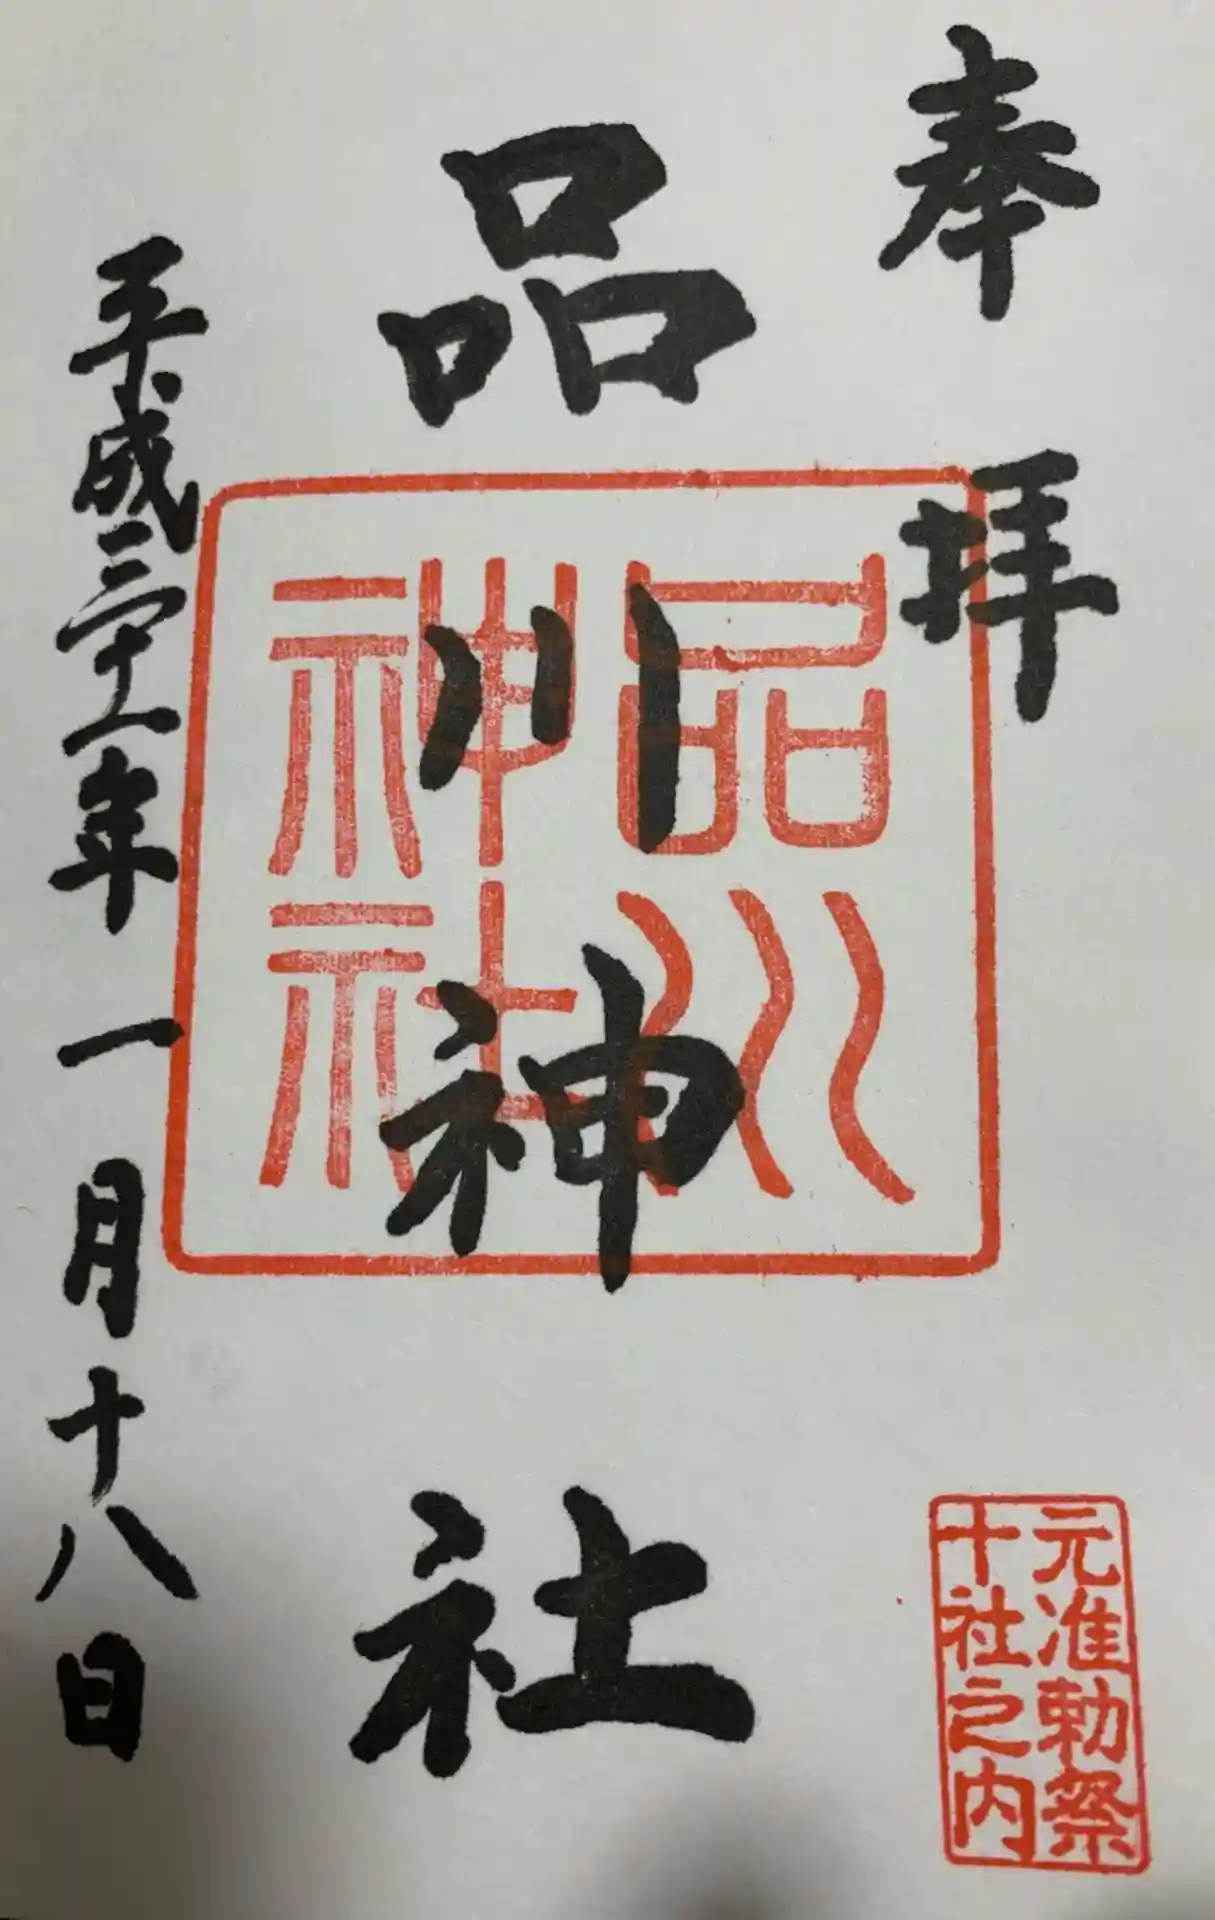 奉拝
品川神社
平成三十一年一月十八日
品川
神社
元准勅祭
十社之内